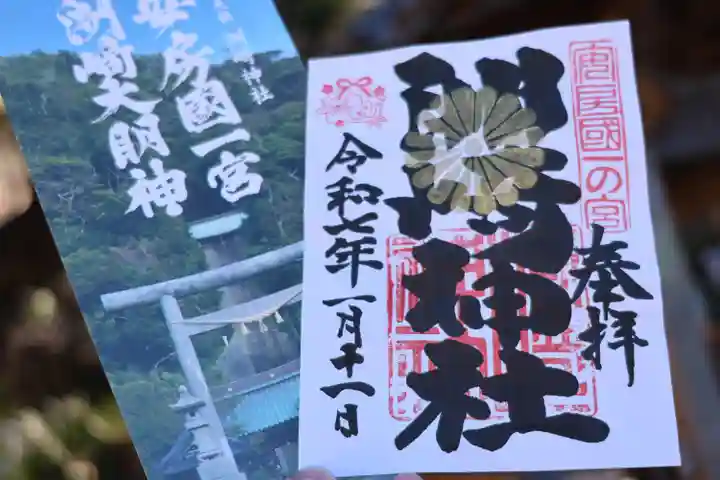 安房國一宮
洲崎大明神
洲崎神社
安房國一の宮
奉拝
洲崎神社
令和七年一月十一日